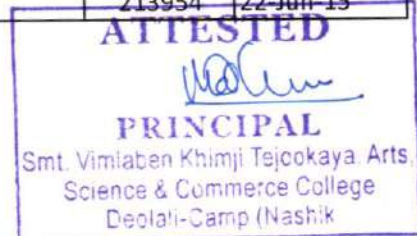 213954 22-Jun-15
ATTESTED
PRINCIPAL
Smt. Vimlaben Khimji Tejookaya Arts,
Science & Commerce College
Deolali-Camp (Nashik